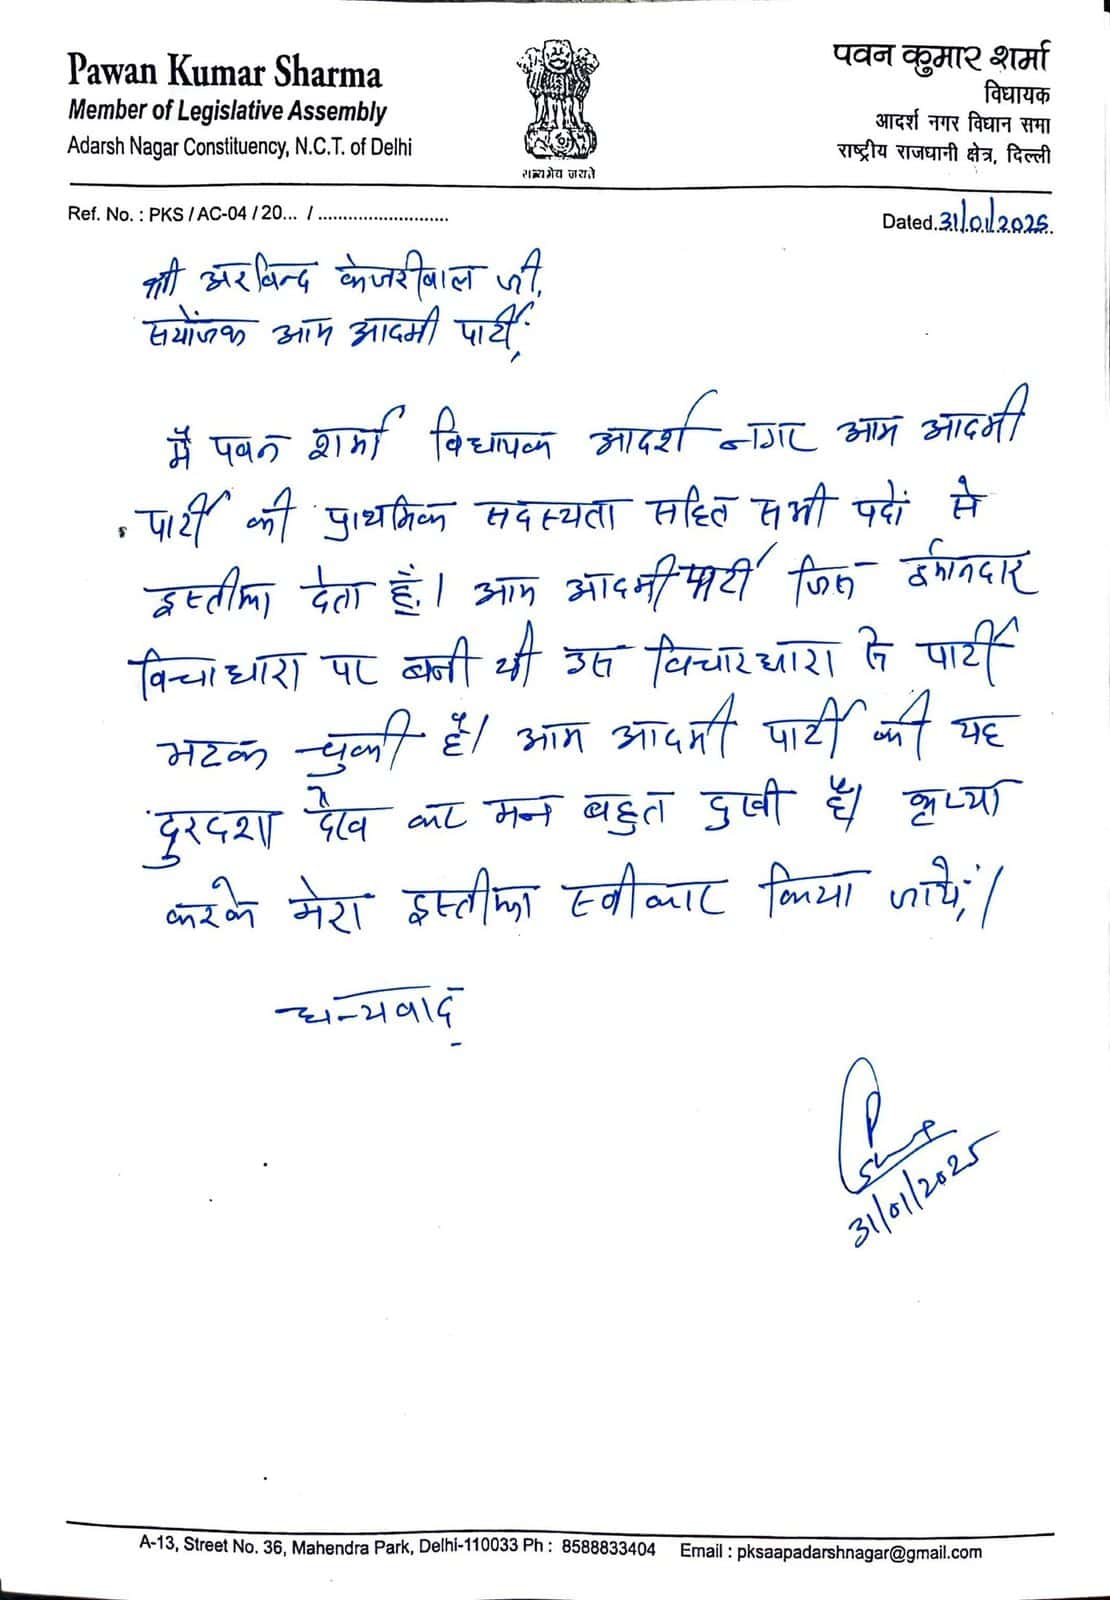 Pawan Kumar Sharma
Member of Legislative Assembly
Adarsh Nagar Constituency, N.C.T. of Delhi
सत्यमेव जयते
पवन कुमार शर्मा
विधायक
आदर्श नगर विधान सभा
राष्ट्रीय राजधानी क्षेत्र, दिल्ली
Ref. No. : PKS / AC-04 / 20... / ..........................
Dated.31/01/2025.
श्री अरविन्द केजरीवाल जी,
सयोंजक आम आदमी पार्टी,
मैं पवन शर्मा विधायक आदर्श नगर आम आदमी
पार्टी की प्राथमिक सदस्यता सहित सभी पदों से
इस्तीफा देता हूँ। आम आदमी पार्टी जिस ईमानदार
विचाधारा पर बनी थी उस विचारधारा से पार्टी
भटक चुकी है। आम आदमी पार्टी की यह
दुरदशा देख कर मन बहुत दुखी है। कृप्या
करके मेरा इस्तीफा स्वीकार किया जाये।
धन्यवाद
31/01/2025
A-13, Street No. 36, Mahendra Park, Delhi-110033 Ph : 8588833404 Email : pksaapadarshnagar@gmail.com